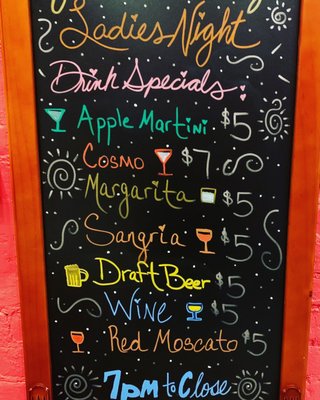 Ladies Night
Drink Specials:
Apple Martini $5
Cosmo $7
Margarita $5
Sangria $5
Draft Beer $5
Wine $5
Red Moscato $5
7pm to Close